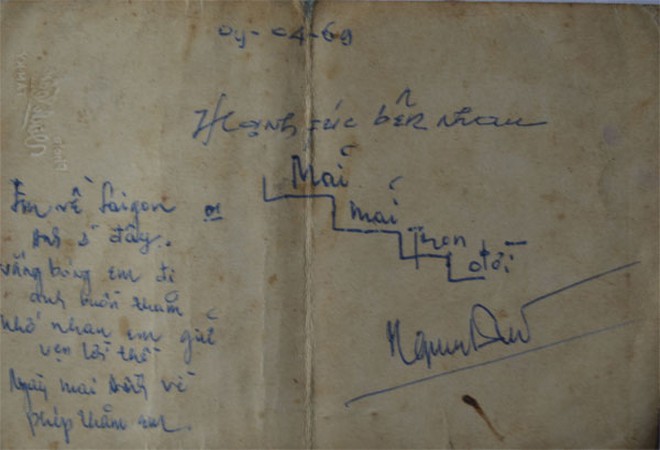 04-69
Hạnh fúc bên nhau
Mãi
mãi
Tron
đời
Em về Saigon
Anh ở đây..
vắng bóng em đi
anh buồn thảm
nhớ nhau em giữ
vẹn lời thề
Ngày mai anh về
phép thăm em.